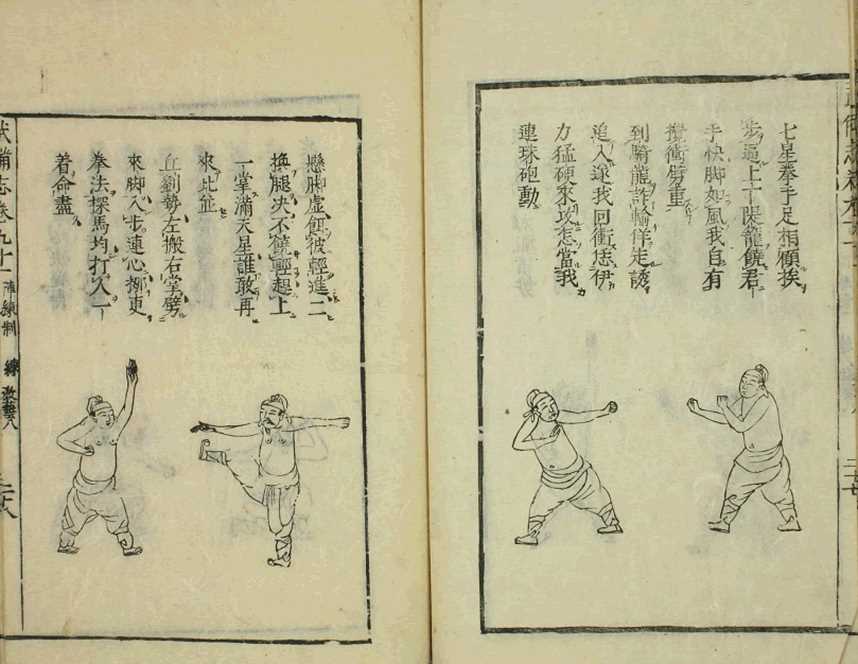 七星拳手足相顧挨
步逼上下隄籠饒君
手快脚如風我自有
攪衝劈重
到騎龍詐輸佯走誘
追入遂我回衝恁伊
力猛硬來攻怎當我
連珠砲動
懸脚虛餌彼輕進二
換腿决不饒輕趕上
一掌滿天星誰敢再
來比並
丘劉勢左搬右掌劈
來脚入步連心挪更
拳法探馬均打人一
着命盡
武備志卷九十一 陣練制 練 教藝八